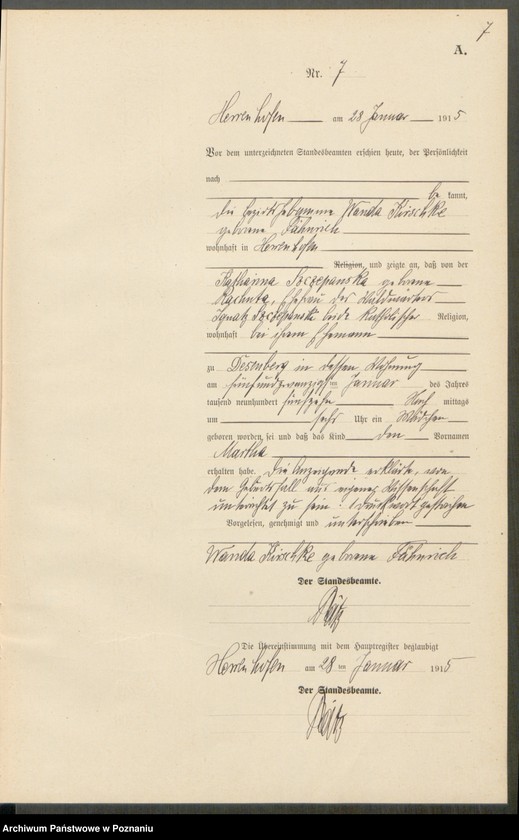 7
A.
Nr. 7
Herrenhofen am 28 Januar 1915
Vor dem unterzeichneten Standesbeamten erschien heute, der Persönlichkeit
nach
be kannt,
die Bezirkshebamme Wanda Kirschke
geborene Fähnrich
wohnhaft in Herrenhofen
Religion, und zeigte an, daß von der
Katharina Szczepanska geborene
Ehefrau des Waldwärters
Ignatz Szczepanski beide katholischer Religion,
wohnhaft bei ihrem Ehemann
zu Desenberg in dessen Wohnung
am fünfundzwanzigsten Januar des Jahres
tausend neunhundert fünfzehn Nach mittags
um sechs Uhr ein Mädchen
geboren worden sei und daß das Kind den Vornamen
Martha
erhalten habe. Die Anzeigende erklärte, von
dem Geburtsfall aus eigener Wissenschaft
unterrichtet zu sein. 1 Druckwort gestrichen
Vorgelesen, genehmigt und unterschrieben
Wanda Kirschke geborene Fähnrich
Der Standesbeamte.
Die Übereinstimmung mit dem Hauptregister beglaubigt
Herrenhofen am 28 ten Januar 1915
Der Standesbeamte.
Archiwum Państwowe w Poznaniu